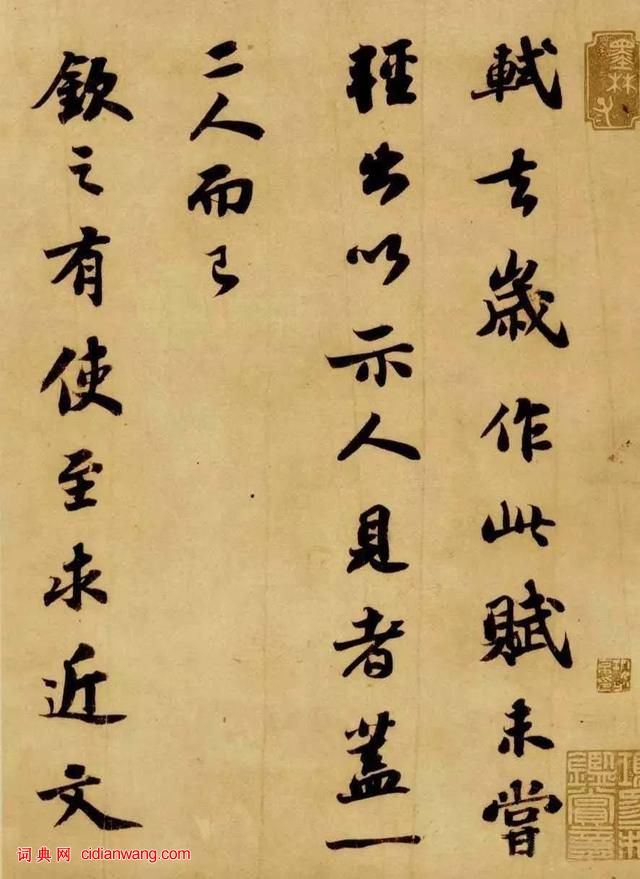 軾去歲作此賦未嘗
輕出以示人見者蓋一
二人而已
欽之有使至求近文
墨林
詞典网 cidianwang.com